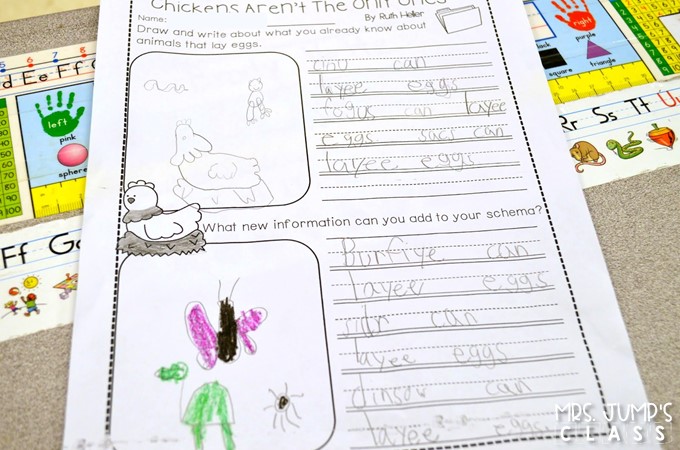 Chickens Aren't The Only Ones
Name:
By Ruth Heller
Draw and write about what you already know about
animals that lay eggs.
can
layee eggs
fogus can layee
eggs sacs can
layee eggs
What new information can you add to your schema?
Burfiye can
layee eggs
sidr can
layee eggs
dinsou can
layee eggs
left
pink
sphere
right
purple
square
triangle
Dd Ee Ff
Ff
Rr Ss Tt
100
MRS. JUMP'S
CLASS